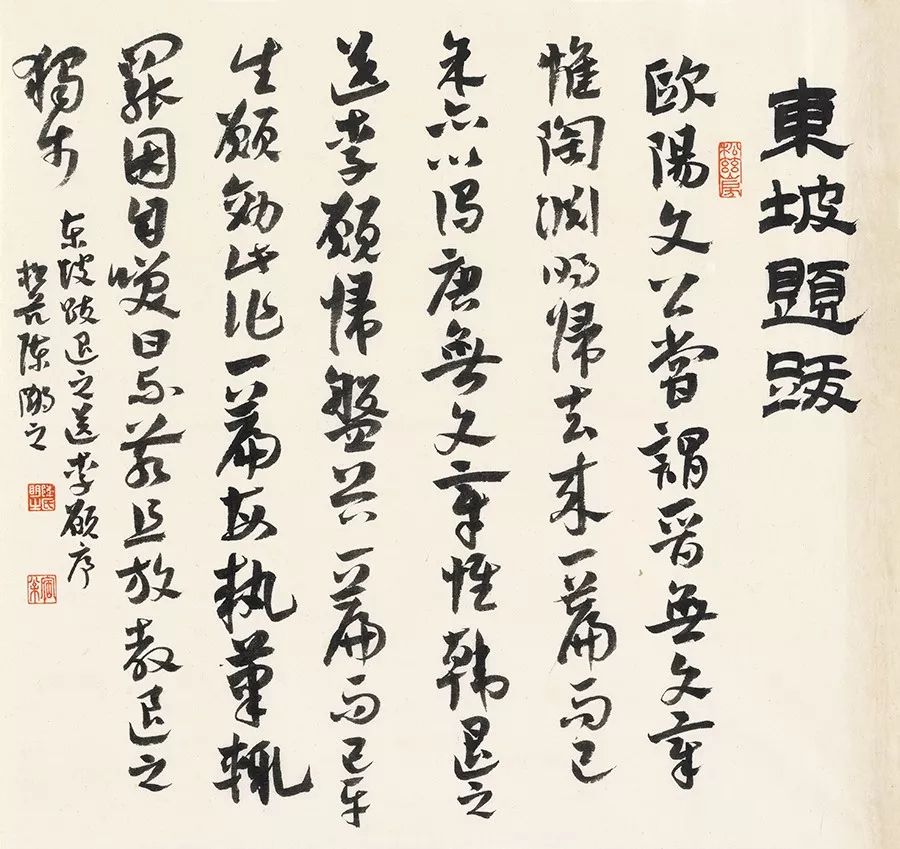 東坡題跋
歐陽文公嘗謂晉無文章
惟陶淵明歸去來一篇而已
余亦以謂唐無文章惟韓退之
送李願歸盤谷一篇而已平
生願効此作一篇每執筆輒
罷因自笑曰不若且放教退之
獨步
东坡跋退之送李願序
陳
之